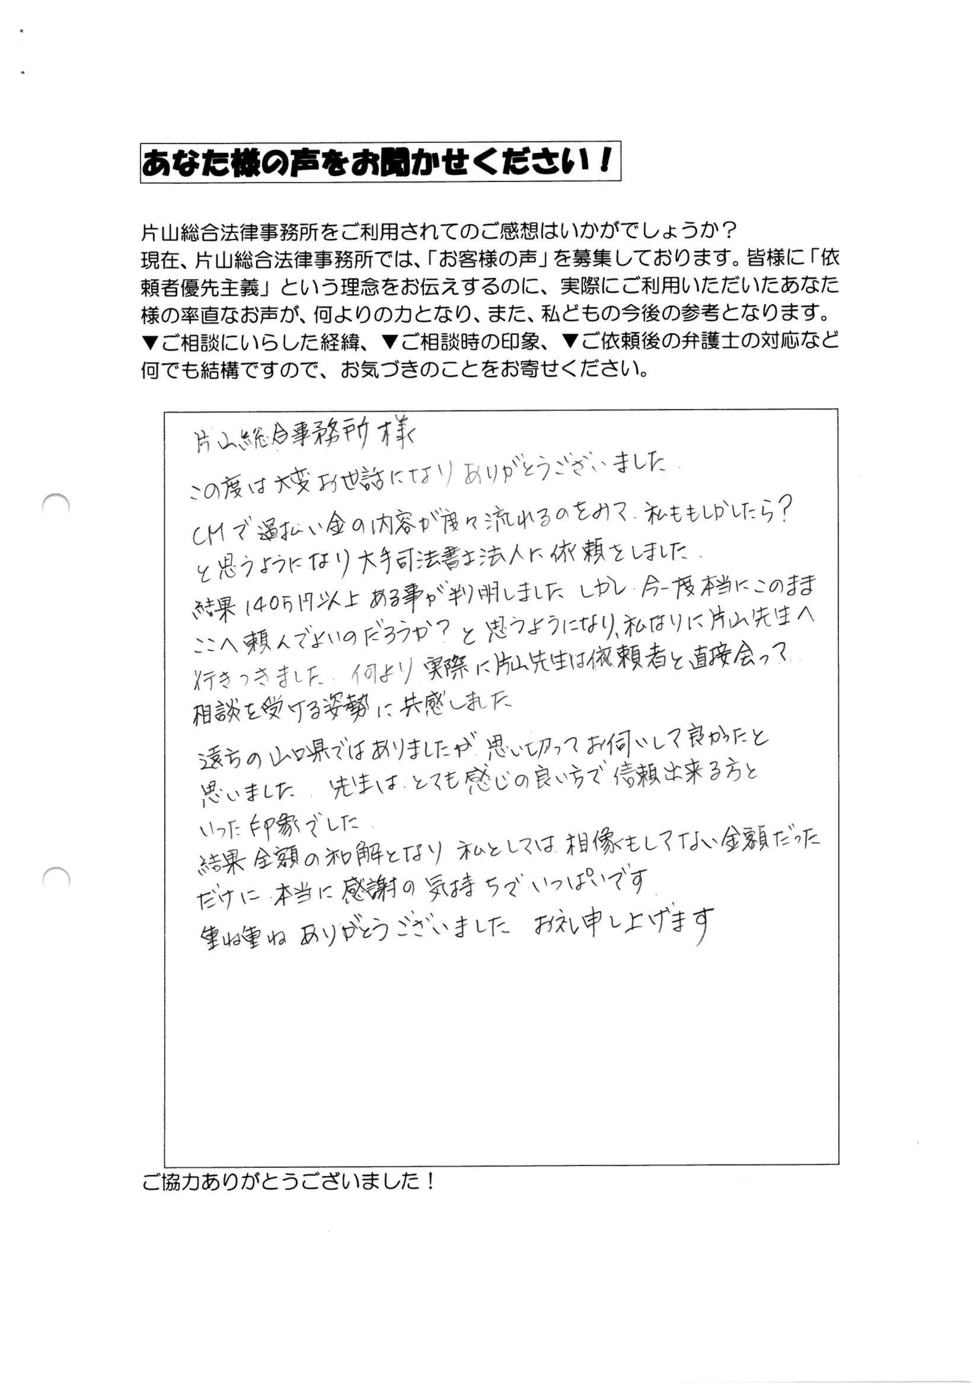 あなた様の声をお聞かせください！
片山総合法律事務所をご利用されてのご感想はいかがでしょうか？
現在、片山総合法律事務所では、「お客様の声」を募集しております。皆様に「依
頼者優先主義」という理念をお伝えするのに、実際にご利用いただいたあなた
様の率直なお声が、何よりの力となり、また、私どもの今後の参考となります。
▼ご相談にいらした経緯、▼ご相談時の印象、▼ご依頼後の弁護士の対応など
何でも結構ですので、お気づきのことをお寄せください。
片山総合事務所様
この度は大変お世話になりありがとうございました.
CMで過払い金の内容が度々流れるのをみて、私ももしかしたら？
と思うようになり大手司法書士法人に依頼をしました.
結果140万円以上ある事が判明しました しかし 今一度本当にこのまま
ここへ頼んでよいのだろうか？と思うようになり、私なりに片山先生へ
行きつきました. 何より 実際に片山先生は依頼者と直接会って
相談を受ける姿勢に共感しました
遠方の山口県ではありましたが 思い切ってお伺いして良かったと
思いました. 先生は とても感じの良い方で信頼出来る方と
いった印象でした.
結果 全額の和解となり 私としては 相像もしてない金額だった
だけに 本当に 感謝の 気持ちでいっぱいです
重ね重ね ありがとうございました お礼申し上げます
ご協力ありがとうございました！